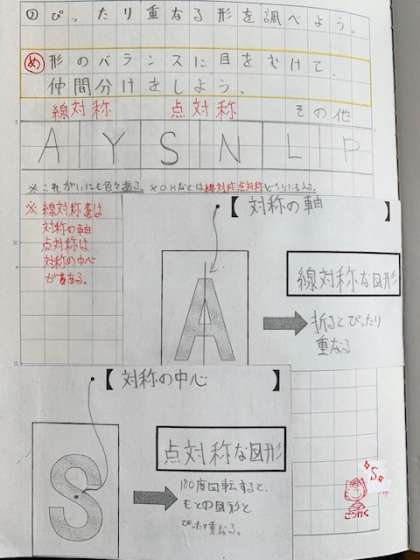 ② ぴったり重なる形を調べよう。
め 形のバランスに目をむけて、
仲間分けをしよう。
線対称 点対称 その他
A Y S N L P
※これがいにも色々ある。XOHなどは線対称点対称どちらにも入る。
※線対称は
対称の軸
点対称は
対称の中心
が重なる。
【対称の軸 】
A
線対称な図形
折るとぴったり
重なる
【対称の中心 】
S
点対称な図形
180度回転すると、
もとの図形と
ぴったり重なる。
S。